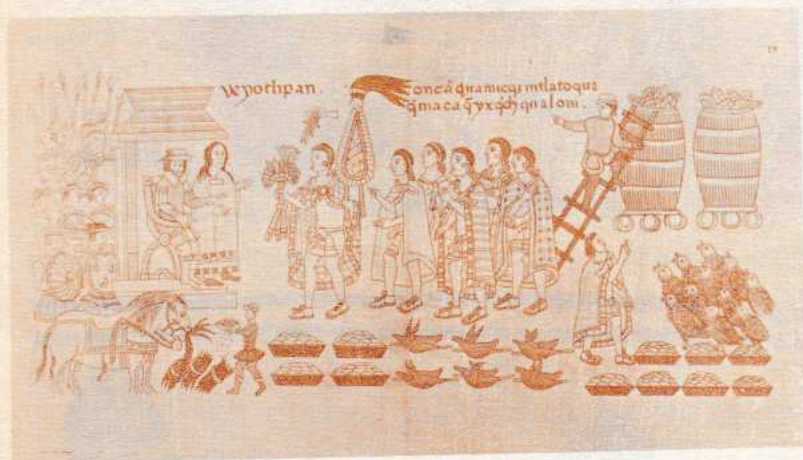 veyotlipan.
oncã quinamicq̃ intlatoque
q̃macaq̃ yxq̃ch qualoni.